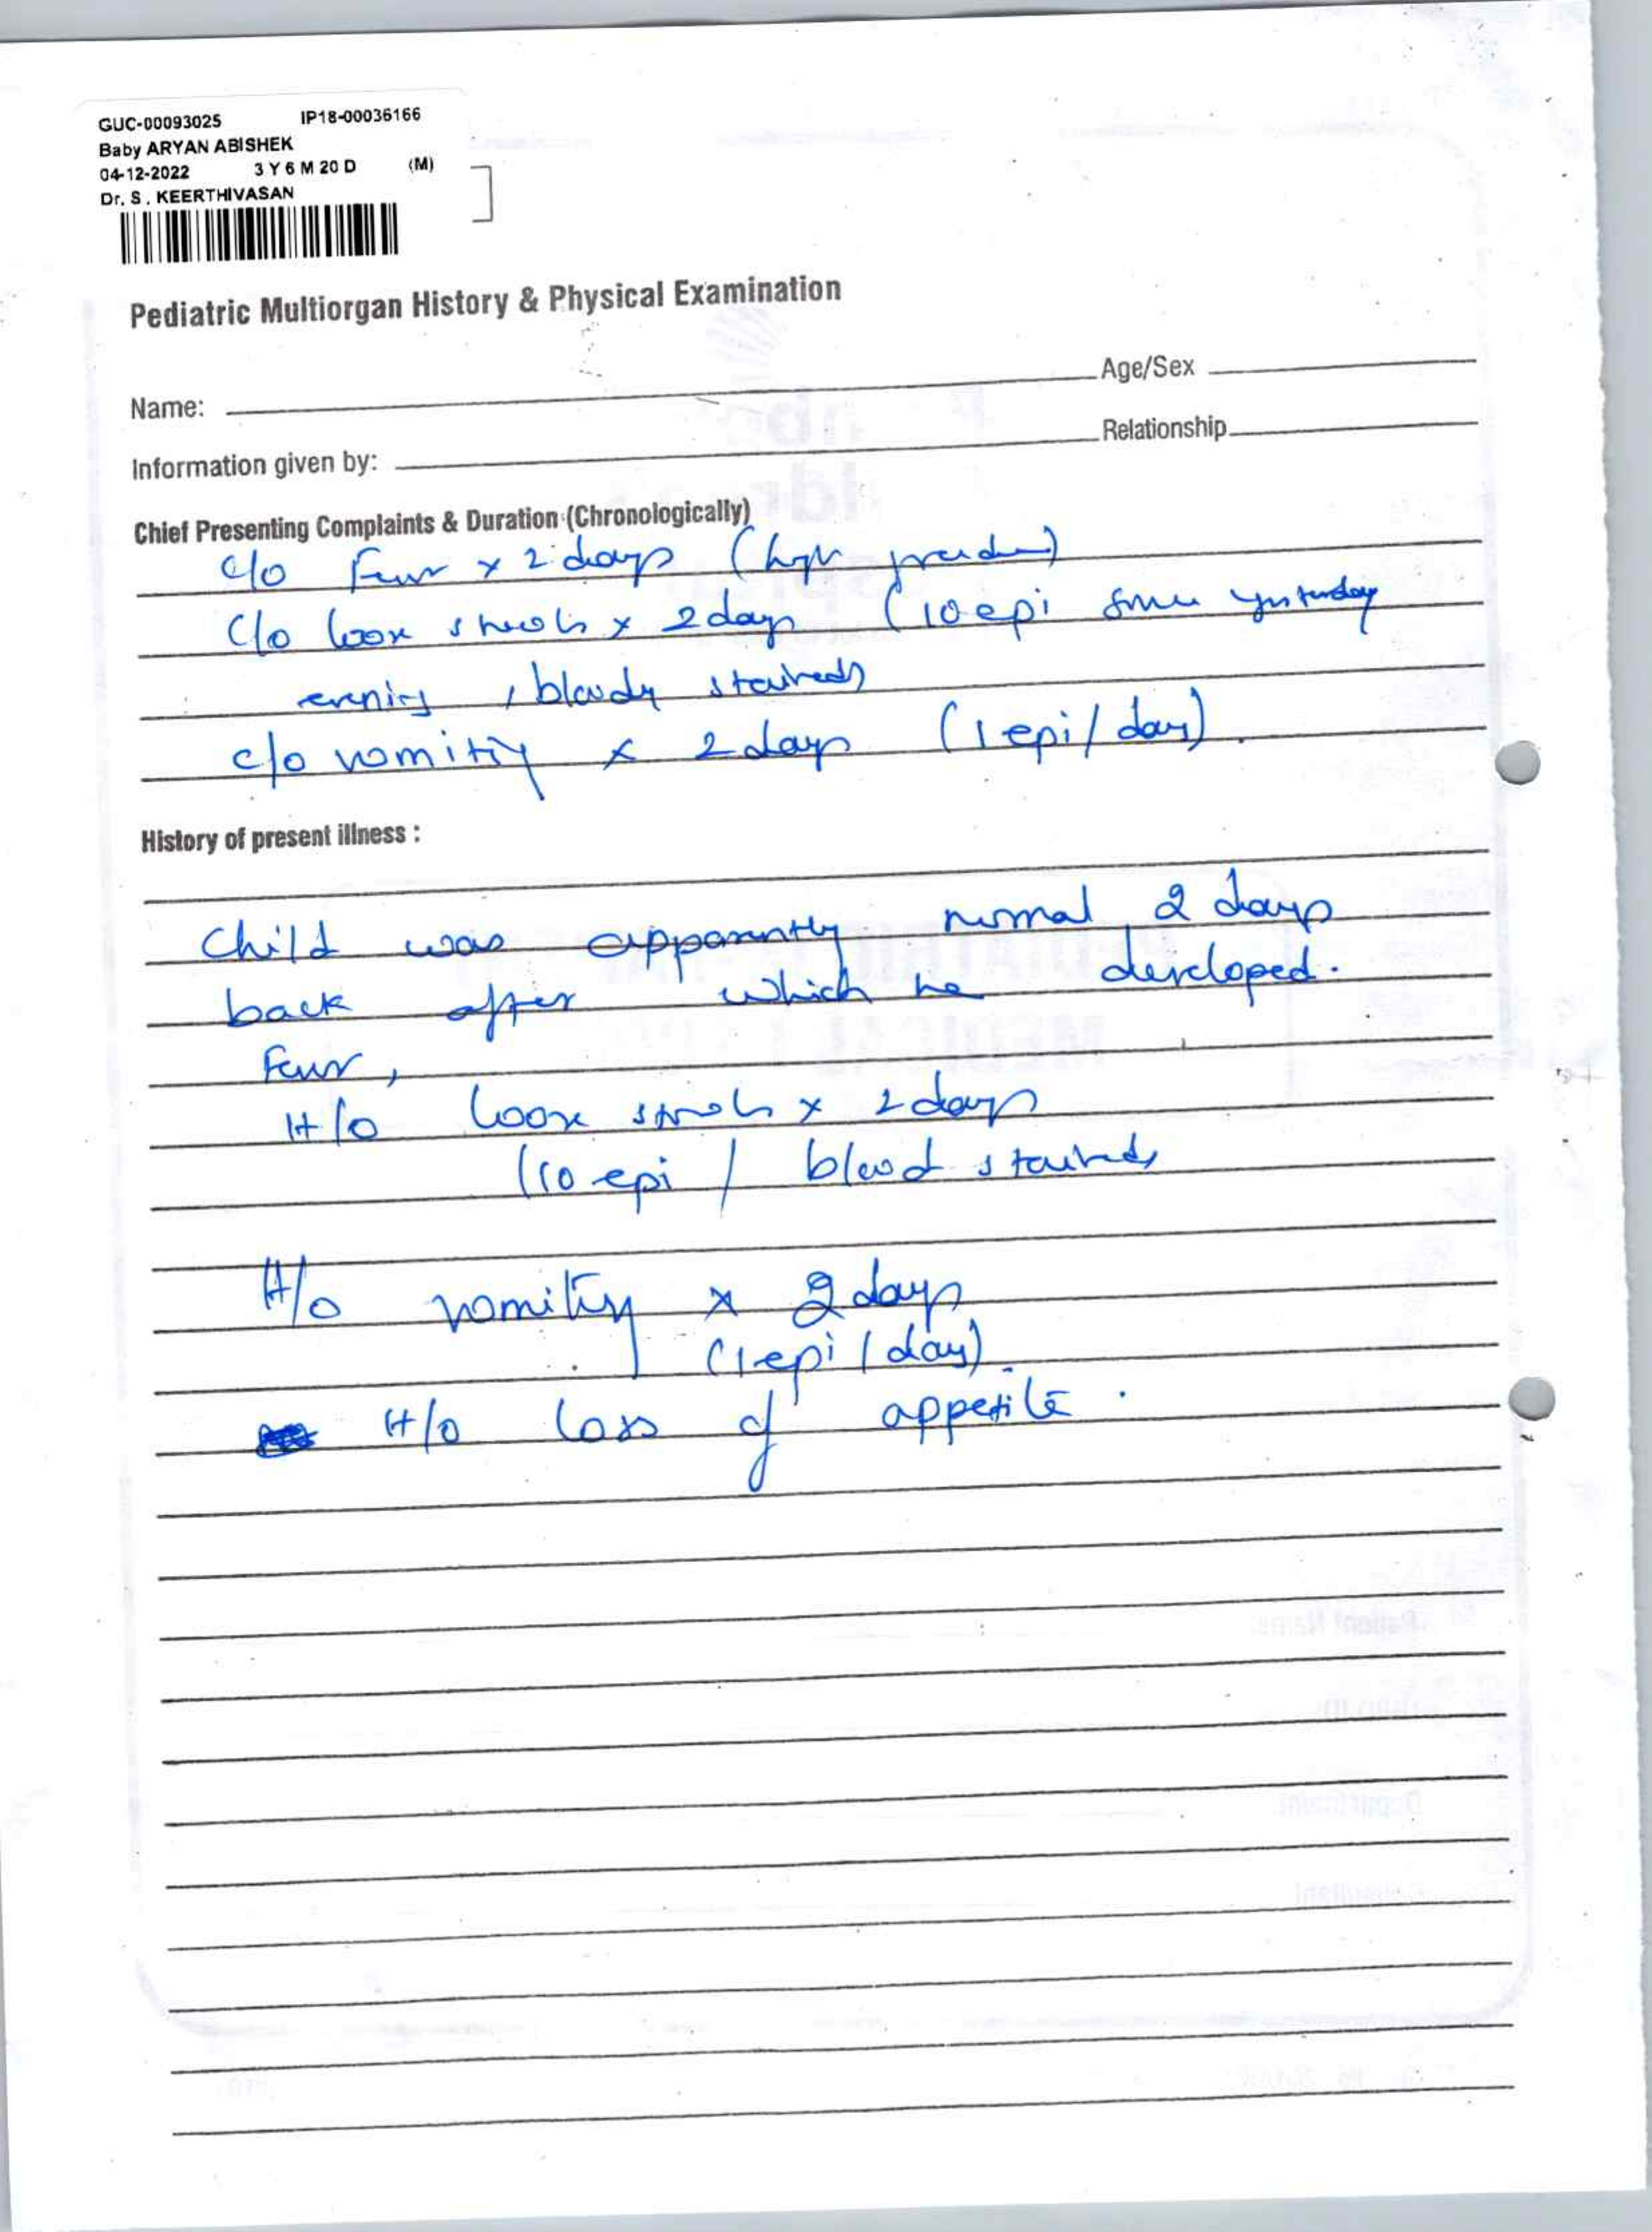 GUC-00093025 IP18-00036166
Baby ARYAN ABISHEK
04-12-2022 3 Y 6 M 20 D (M)
Dr. S . KEERTHIVASAN
Pediatric Multiorgan History & Physical Examination
Name: Age/Sex
Information given by: Relationship
Chief Presenting Complaints & Duration (Chronologically)
c/o Fever x 2 days (high
c/o loose stools x 2 days (10 epi since yesterday
evening, bloody stained)
c/o vomiting x 2 days (1 epi/day).
History of present illness :
Child was apparently normal 2 days
back after which he developed.
Fever,
H/o loose stools x 2 days
(10 epi / blood stained)
H/o vomiting x 2 days
(1 epi / day).
H/o loss of appetite.